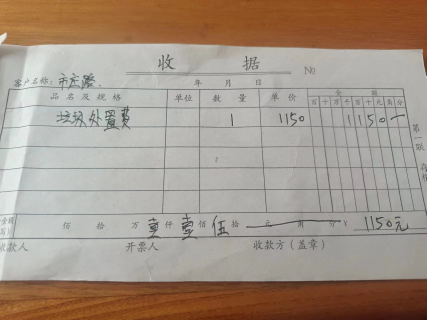 收 据
No
客户名称: 年 月 日
品名及规格 单位 数量 单价 金额
百 十 万 千 百 十 元 角 分
垃圾处置费 1 1150 1 1 5 0 一
第一联
佰 拾 万 壹 仟 壹 佰 伍 拾 元 角 分 ¥ 1150元
收款人 开票人 收款方(盖章)